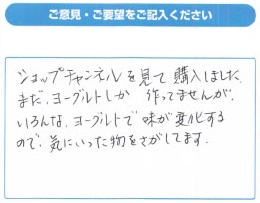 ご意見・ご要望をご記入ください
ショップチャンネルを見て購入しました。
まだ、ヨーグルトしか作ってませんが、
いろんな、ヨーグルトで味が変化する
ので、気にいった物をさがしてます。